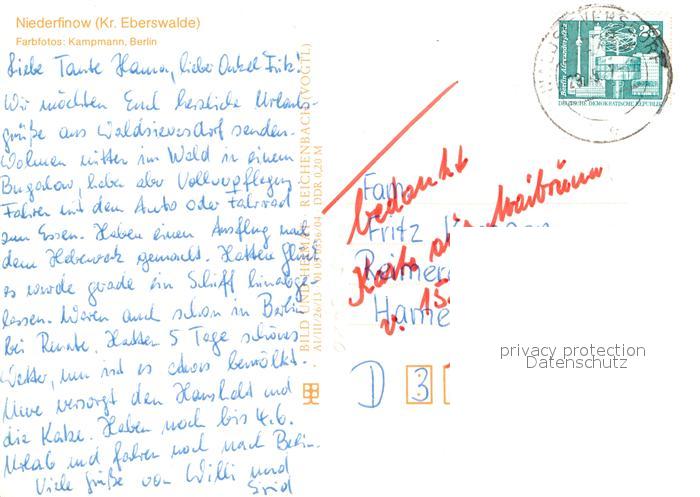 Niederfinow (Kr. Eberswalde)
Farbfotos: Kampmann, Berlin
Liebe Tante Hanna, lieber Onkel Fritz!
Wir möchten Euch herzliche Urlaubs-
grüße aus Waldsieversdorf senden.
Wohnen mitten im Wald in einem
Bungalow, haben aber Vollverpflegung
Fahren mit dem Auto oder Fahrrad
zum Essen. Haben einen Ausflug nach
dem Hebewerk gemacht. Hatten Glück
es wurde grade ein Schiff hinabge-
lassen. Waren auch schon in Berlin
bei Renate. Hatten 5 Tage schönes
Wetter, nun ist es etwas bewölkt.
Uwe versorgt den Haushalt und
die Katze. Haben noch bis 4.6.
Urlaub und fahren noch nach Berlin.
Viele Grüße von Willi und
BILD UND HEIMAT REICHENBACH (VOGTL)
A1/III/26/13 DDR 0,20 M
Berlin-Alexanderplatz
DEUTSCHE DEMOKRATISCHE REPUBLIK
bedankt
Fam.
Fritz
Karte
v. 15.
D 3
privacy protection
Datenschutz